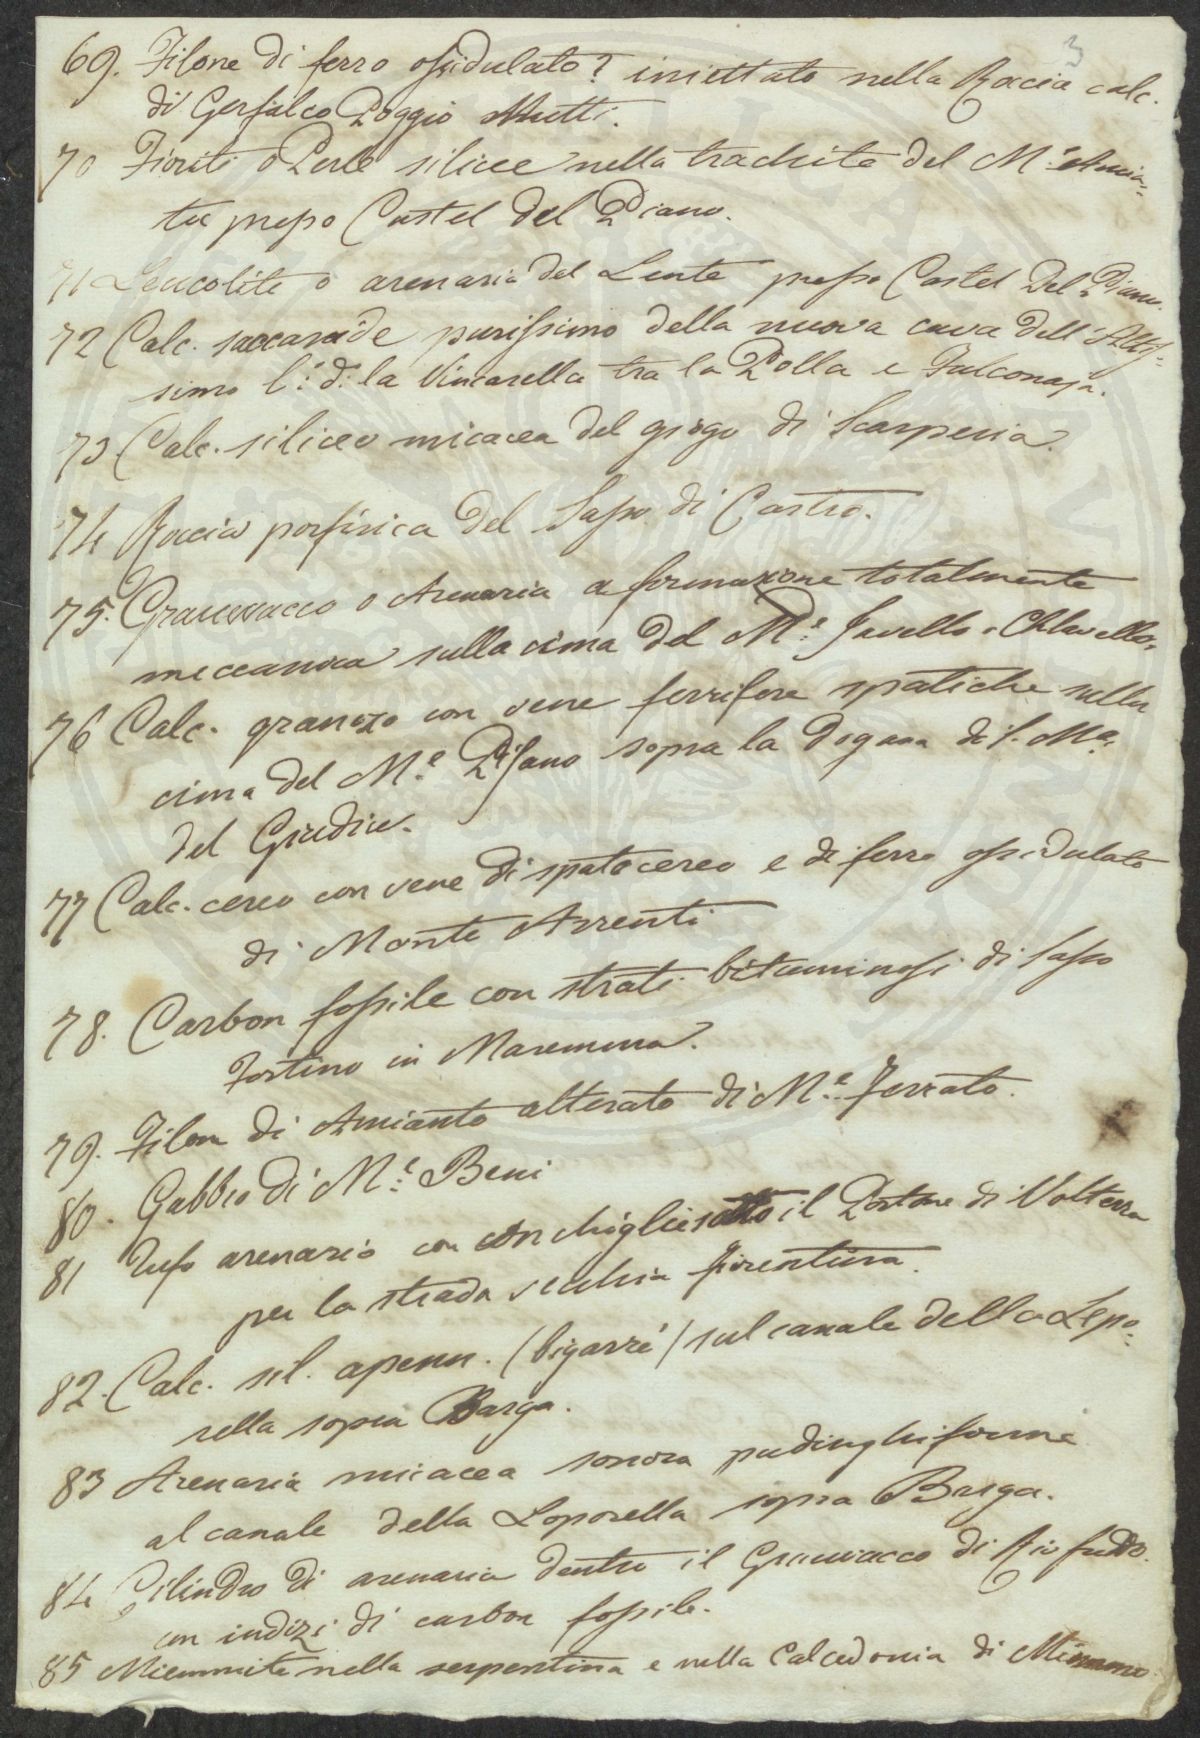 3
69. Filone di ferro ossidulato? iniettato nella Roccia calc.
di Gerfalco Poggio Mutti.
70 Fioriti o Perle silicee nella trachite del M.e Amia-
ta presso Castel del Piano.
71 Leucolite o arenaria del Lente presso Castel del Piano.
72 Calc. saccaroide purissimo della nuova cava dell'Altis-
simo l.i d.i la Vincarella tra la Polla e Falconaja.
73 Calc. siliceo micacea del giogo di Scarperia.
74 Roccia porfirica del Sasso di Castro.
75. Grauwacco o Arenaria a formazione totalmente
meccanica sulla cima del M.e Javello o Chlavello.
76 Calc. granoso con vene ferrifere spatiche sulla
cima del M.e Pisano sopra la Dogana di S. M.a
del Giudice.
77 Calc. cereo con vene di spato cereo e di ferro ossidulato
di Monte Arrenti
78. Carbon fossile con strati bituminosi di Sasso
Fortino in Maremma.
79. Filon di Amianto alterato di M.e Ferrato.
80. Gabbro di M.e Beni
81 Tufo arenario con conchiglie sotto il Portone di Volterra
per la strada vecchia fiorentina.
82. Calc. sil. apenn. (bigarré) sul canale della Lepo-
rella sopra Barga.
83 Arenaria micacea sonora pudinghiforme
al canale della Loporella sopra Barga.
84 Cilindro di arenaria dentro il Grauwacco di Rio freddo
con indizi di carbon fossile.
85 Miemmite nella serpentina e nella Calcedonia di